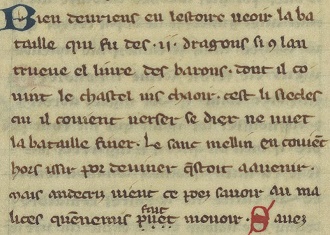 Bien deuriens en lestoire ueoir la ba
taille qui fu des .ii. dragons si 9 lan
trueue el liure des barons . dont il co
uint le chastel ius chaoir . cest li siecles
qui il couient uerser se diex ne met
la bataille finer . Le sanc mellin en couiēt
hors issir por deuiner q̄stoit a auenir .
mais andecriz uient ce poez sauoir au ma
lices quēnemis fait mouoir . Sauez